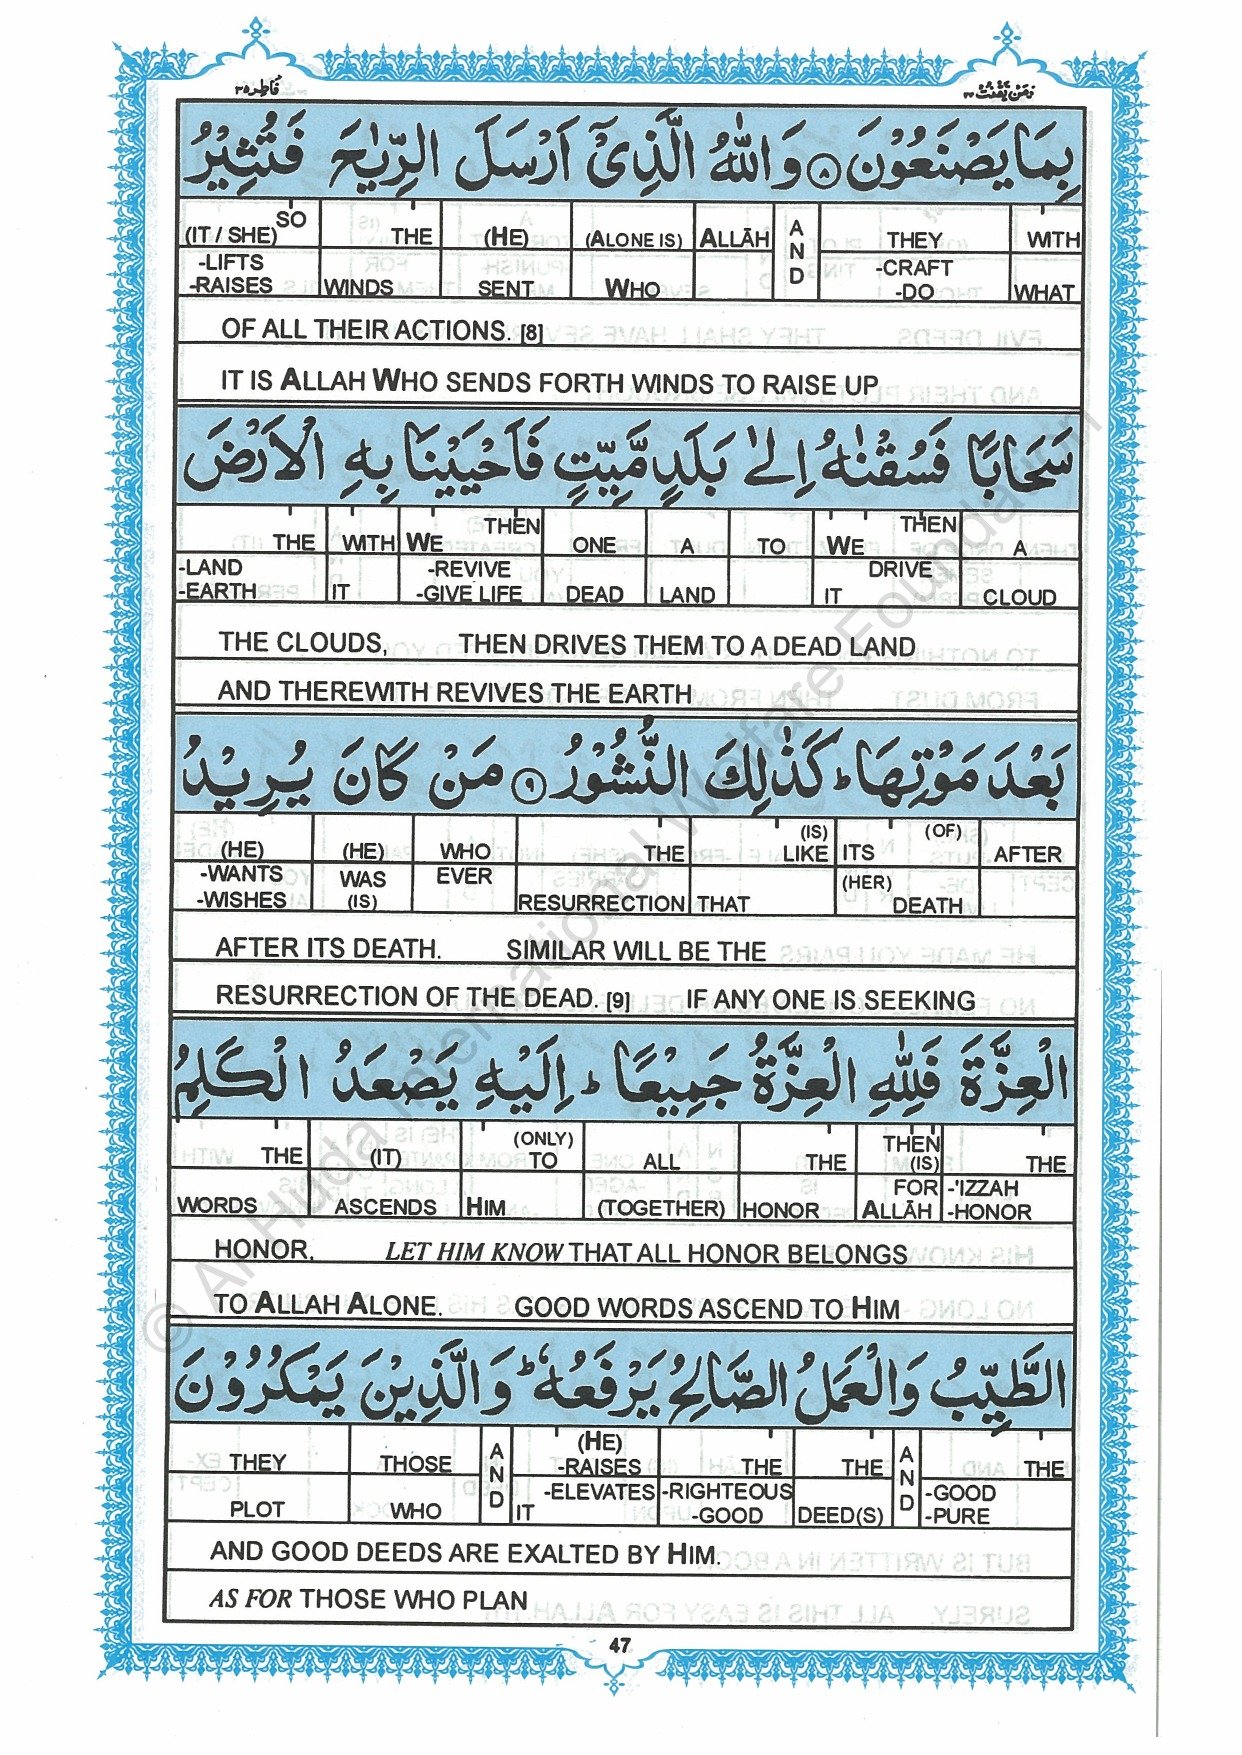 فَاطِر ٣٥
وَمَنْ يَّقْنُتْ ٢٢
بِمَا يَصْنَعُوْنَ ۝٨ وَاللّٰهُ الَّذِىْۤ اَرْسَلَ الرِّيٰحَ فَتُثِيْرُ
SO (IT / SHE) -LIFTS -RAISES | THE WINDS | (HE) SENT | (ALONE IS) WHO | ALLĀH | AND | THEY -CRAFT -DO | WITH WHAT
OF ALL THEIR ACTIONS. [8]
IT IS ALLAH WHO SENDS FORTH WINDS TO RAISE UP
سَحَابًا فَسُقْنٰهُ اِلٰى بَلَدٍ مَّيِّتٍ فَاَحْيَيْنَا بِهِ الْاَرْضَ
THE -LAND -EARTH | WITH IT | THEN WE -REVIVE -GIVE LIFE | ONE DEAD | A LAND | TO | THEN WE DRIVE IT | A CLOUD
THE CLOUDS, THEN DRIVES THEM TO A DEAD LAND
AND THEREWITH REVIVES THE EARTH
بَعْدَ مَوْتِهَا ؕ كَذٰلِكَ النُّشُوْرُ ۝٩ مَنْ كَانَ يُرِيْدُ
(HE) -WANTS -WISHES | (HE) WAS (IS) | WHO EVER | THE RESURRECTION | (IS) LIKE THAT | (OF) ITS (HER) DEATH | AFTER
AFTER ITS DEATH. SIMILAR WILL BE THE
RESURRECTION OF THE DEAD. [9] IF ANY ONE IS SEEKING
الْعِزَّةَ فَلِلّٰهِ الْعِزَّةُ جَمِيْعًا ؕ اِلَيْهِ يَصْعَدُ الْكَلِمُ
THE WORDS | (IT) ASCENDS | (ONLY) TO HIM | ALL (TOGETHER) | THE HONOR | THEN (IS) FOR ALLĀH | THE -'IZZAH -HONOR
HONOR, LET HIM KNOW THAT ALL HONOR BELONGS
TO ALLAH ALONE. GOOD WORDS ASCEND TO HIM
الطَّيِّبُ وَالْعَمَلُ الصَّالِحُ يَرْفَعُهٗ ؕ وَالَّذِيْنَ يَمْكُرُوْنَ
THEY PLOT | THOSE WHO | AND | (HE) -RAISES -ELEVATES IT | THE -RIGHTEOUS -GOOD | THE DEED(S) | AND | THE -GOOD -PURE
AND GOOD DEEDS ARE EXALTED BY HIM.
AS FOR THOSE WHO PLAN
47
© Al Huda International Welfare Foundation